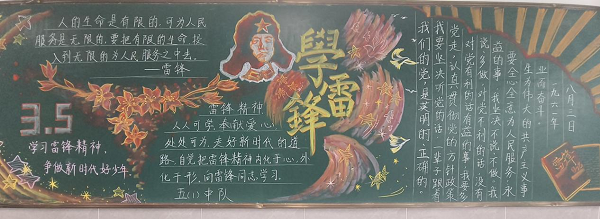 人的生命是有限的,可为人民
服务是无限的,要把有限的生命投
入到无限的为人民服务之中去。
——雷锋
3.5
学习雷锋精神,
争做新时代好少年。
學雷鋒
雷锋精神,
人人可学,奉献爱心,
处处可为,走好新时代的道
路,自觉把雷锋精神内化于心,外
化于形,向雷锋同志学习。
五(1)中队
八月三日
一九六一年
业而奋斗。
生为伟大的共产主义事
要全心全意为人民服务,永
益的事,我坚决不说不做。我
说、多做,对党不利的话、没有
对党有利的话、有益的事,我要多
党走,认真贯彻党的方针政策
我要坚决听党的话,一辈子跟着
我们的党是英明的、正确的。